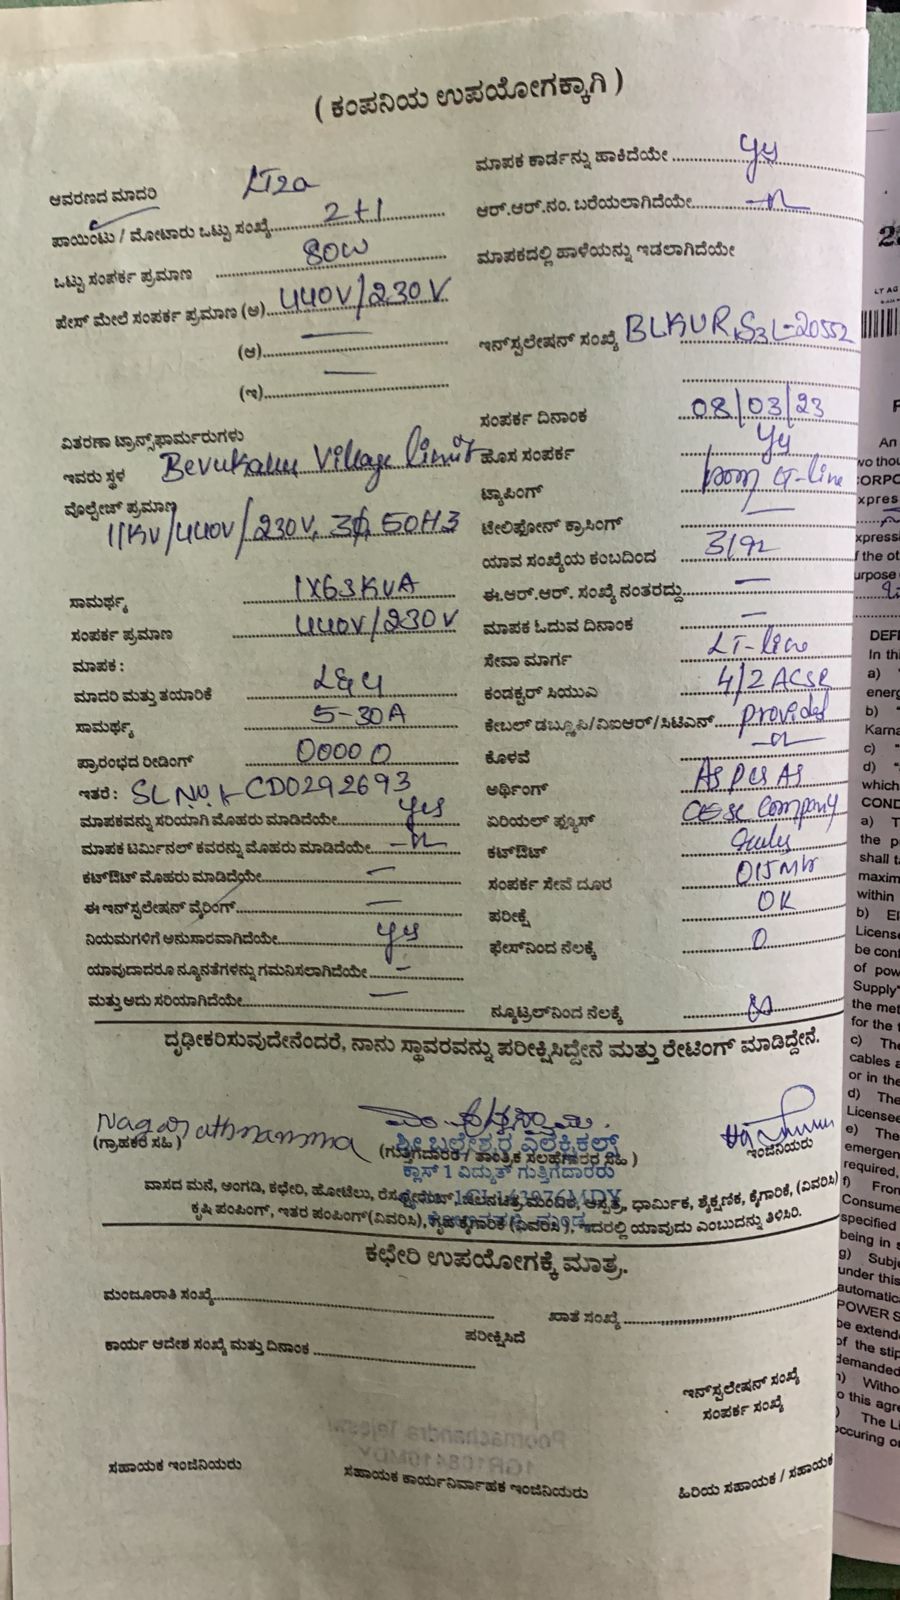 ( ಕಂಪನಿಯ ಉಪಯೋಗಕ್ಕಾಗಿ )
ಆವರಣದ ಮಾದರಿ LT2a
ಪಾಯಿಂಟು / ಮೋಟಾರು ಒಟ್ಟು ಸಂಖ್ಯೆ 2+1
ಒಟ್ಟು ಸಂಪರ್ಕ ಪ್ರಮಾಣ 80W
ಪೇಸ್ ಮೇಲೆ ಸಂಪರ್ಕ ಪ್ರಮಾಣ (ಅ) 440V/230V
(ಆ) —
(ಇ) —
ವಿತರಣಾ ಟ್ರಾನ್ಸ್‌ಫಾರ್ಮರುಗಳು
ಇವರು ಸ್ಥಳ Village limit
ವೊಲ್ಟೇಜ್ ಪ್ರಮಾಣ
11KV/440V/230V, 3ϕ, 50HZ
ಸಾಮರ್ಥ್ಯ 1X63KVA
ಸಂಪರ್ಕ ಪ್ರಮಾಣ 440V/230V
ಮಾಪಕ :
ಮಾದರಿ ಮತ್ತು ತಯಾರಿಕೆ
ಸಾಮರ್ಥ್ಯ 5-30A
ಪ್ರಾರಂಭದ ರೀಡಿಂಗ್ 00000
ಇತರೆ : SL NO. CD0292693
ಮಾಪಕವನ್ನು ಸರಿಯಾಗಿ ಮೊಹರು ಮಾಡಿದೆಯೇ yes
ಮಾಪಕ ಟರ್ಮಿನಲ್ ಕವರನ್ನು ಮೊಹರು ಮಾಡಿದೆಯೇ —"—
ಕಟ್‌ಔಟ್ ಮೊಹರು ಮಾಡಿದೆಯೇ —
ಈ ಇನ್‌ಸ್ಟಲೇಷನ್ ವೈರಿಂಗ್ —
ನಿಯಮಗಳಿಗೆ ಅನುಸಾರವಾಗಿದೆಯೇ yes
ಯಾವುದಾದರೂ ನ್ಯೂನತೆಗಳನ್ನು ಗಮನಿಸಲಾಗಿದೆಯೇ —
ಮತ್ತು ಅದು ಸರಿಯಾಗಿದೆಯೇ —
ಮಾಪಕ ಕಾರ್ಡನ್ನು ಹಾಕಿದೆಯೇ yes
ಆರ್.ಆರ್.ನಂ. ಬರೆಯಲಾಗಿದೆಯೇ —"—
ಮಾಪಕದಲ್ಲಿ ಹಾಳೆಯನ್ನು ಇಡಲಾಗಿದೆಯೇ
ಇನ್‌ಸ್ಟಲೇಷನ್ ಸಂಖ್ಯೆ
ಸಂಪರ್ಕ ದಿನಾಂಕ 08/03/23
ಹೊಸ ಸಂಪರ್ಕ yes
ಟ್ಯಾಪಿಂಗ್ from LT-line
ಟೇಲಿಫೋನ್ ಕ್ರಾಸಿಂಗ್ —
ಯಾವ ಸಂಖ್ಯೆಯ ಕಂಬದಿಂದ
ಈ.ಆರ್.ಆರ್. ಸಂಖ್ಯೆ ನಂತರದ್ದು —
ಮಾಪಕ ಓದುವ ದಿನಾಂಕ —
ಸೇವಾ ಮಾರ್ಗ LT-line
ಕಂಡಕ್ಟರ್ ಸಿಯುಎ 4/2 ACSR
ಕೇಬಲ್ ಡಬ್ಲ್ಯೂಪಿ/ವಿಐಆರ್/ಸಿಟಿಎಸ್ provided
ಕೊಳವೆ —"—
ಅರ್ಥಿಂಗ್ AS PER AS
ಏರಿಯಲ್ ಫ್ಯೂಸ್ CESC Company
ಕಟ್‌ಔಟ್ Rules
ಸಂಪರ್ಕ ಸೇವೆ ದೂರ 015Mtr
ಪರೀಕ್ಷೆ OK
ಫೇಸ್‌ನಿಂದ ನೆಲಕ್ಕೆ 0
ನ್ಯೂಟ್ರಲ್‌ನಿಂದ ನೆಲಕ್ಕೆ
ದೃಢೀಕರಿಸುವುದೇನೆಂದರೆ, ನಾನು ಸ್ಥಾವರವನ್ನು ಪರೀಕ್ಷಿಸಿದ್ದೇನೆ ಮತ್ತು ರೇಟಿಂಗ್ ಮಾಡಿದ್ದೇನೆ.
Nagarathnamma
(ಗ್ರಾಹಕರ ಸಹಿ )
(ಗುತ್ತಿಗೆದಾರರ / ತಾಂತ್ರಿಕ ಸಲಹೆಗಾರರ ಸಹಿ )
ಇಂಜಿನಿಯರು
ಕ್ಲಾಸ್ 1 ವಿದ್ಯುತ್ ಗುತ್ತಿಗೆದಾರರು
ವಾಸದ ಮನೆ, ಅಂಗಡಿ, ಕಛೇರಿ, ಹೋಟೆಲು, ಧಾರ್ಮಿಕ, ಶೈಕ್ಷಣಿಕ, ಕೈಗಾರಿಕೆ, (ವಿವರಿಸಿ)
ಕೃಷಿ ಪಂಪಿಂಗ್, ಇತರ ಪಂಪಿಂಗ್(ವಿವರಿಸಿ), ಗೃಹ ಕೈಗಾರಿಕೆ (ವಿವರಿಸಿ), ಇದರಲ್ಲಿ ಯಾವುದು ಎಂಬುದನ್ನು ತಿಳಿಸಿರಿ.
ಕಛೇರಿ ಉಪಯೋಗಕ್ಕೆ ಮಾತ್ರ.
ಮಂಜೂರಾತಿ ಸಂಖ್ಯೆ
ಖಾತೆ ಸಂಖ್ಯೆ
ಪರೀಕ್ಷಿಸಿದೆ
ಕಾರ್ಯ ಆದೇಶ ಸಂಖ್ಯೆ ಮತ್ತು ದಿನಾಂಕ
ಇನ್‌ಸ್ಟಲೇಷನ್ ಸಂಖ್ಯೆ
ಸಂಪರ್ಕ ಸಂಖ್ಯೆ
ಸಹಾಯಕ ಇಂಜಿನಿಯರು
ಸಹಾಯಕ ಕಾರ್ಯನಿರ್ವಾಹಕ ಇಂಜಿನಿಯರು
ಹಿರಿಯ ಸಹಾಯಕ / ಸಹಾಯಕ